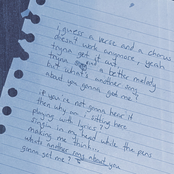 I guess a verse and a chorus
doesn't work anymore, yeah
tryna get it out
tryna find a better melody
but what's another song
about you gonna get me?
if you're not gonna hear it
then why am I sitting here
playing with lyrics,
singin in my head while the pens
making me thinkin
whats another song about you
gonna get me?